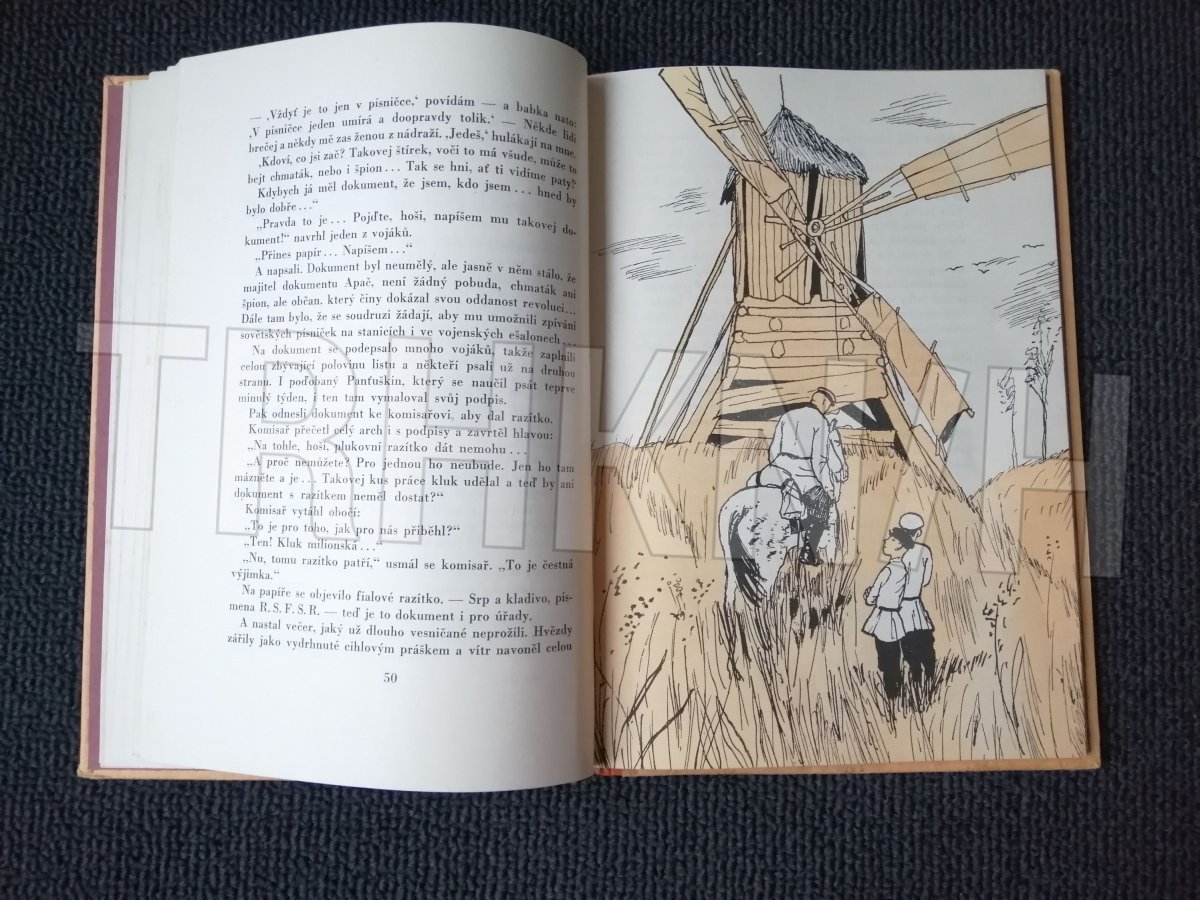 — ‚Vždyť je to jen v písničce,‘ povídám — a babka nato:
‚V písničce jeden umírá a doopravdy tolik.‘ — Někde lidi
brečej a někdy mě zas ženou z nádraží. ‚Jedeš,‘ hulákají na mne.
‚Kdoví, co jsi zač? Takovej štírek, voči to má všude, může to
bejt chmaták, nebo i špion... Tak se hni, ať ti vidíme paty!‘
Kdybych já měl dokument, že jsem, kdo jsem... hned by
bylo dobře...“
„Pravda to je... Pojďte, hoši, napíšem mu takovej do-
kument!“ navrhl jeden z vojáků.
„Přines papír... Napíšem...“
A napsali. Dokument byl neumělý, ale jasně v něm stálo, že
majitel dokumentu Apač, není žádný pobuda, chmaták ani
špion, ale občan, který činy dokázal svou oddanost revoluci...
Dále tam bylo, že se soudruzi žádají, aby mu umožnili zpívání
sovětských písniček na stanicích i ve vojenských ešalonech...
Na dokument se podepsalo mnoho vojáků, takže zaplnili
celou zbývající polovinu listu a někteří psali už na druhou
stranu. I poďobaný Panťuškin, který se naučil psát teprve
minulý týden, i ten tam vymaloval svůj podpis.
Pak odnesli dokument ke komisařovi, aby dal razítko.
Komisař přečetl celý arch i s podpisy a zavrtěl hlavou:
„Na tohle, hoši, plukovní razítko dát nemohu...
„A proč nemůžete? Pro jednou ho neubude. Jen ho tam
mázněte a je... Takovej kus práce kluk udělal a teď by ani
dokument s razítkem neměl dostat?“
Komisař vytáhl obočí:
„To je pro toho, jak pro nás přiběhl?“
„Ten! Kluk milionská...“
„Nu, tomu razítko patří,“ usmál se komisař. „To je čestná
výjimka.“
Na papíře se objevilo fialové razítko. — Srp a kladivo, pís-
mena R. S. F. S. R. — teď je to dokument i pro úřady.
A nastal večer, jaký už dlouho vesničané neprožili. Hvězdy
zářily jako vydrhnuté cihlovým práškem a vítr navoněl celou
50